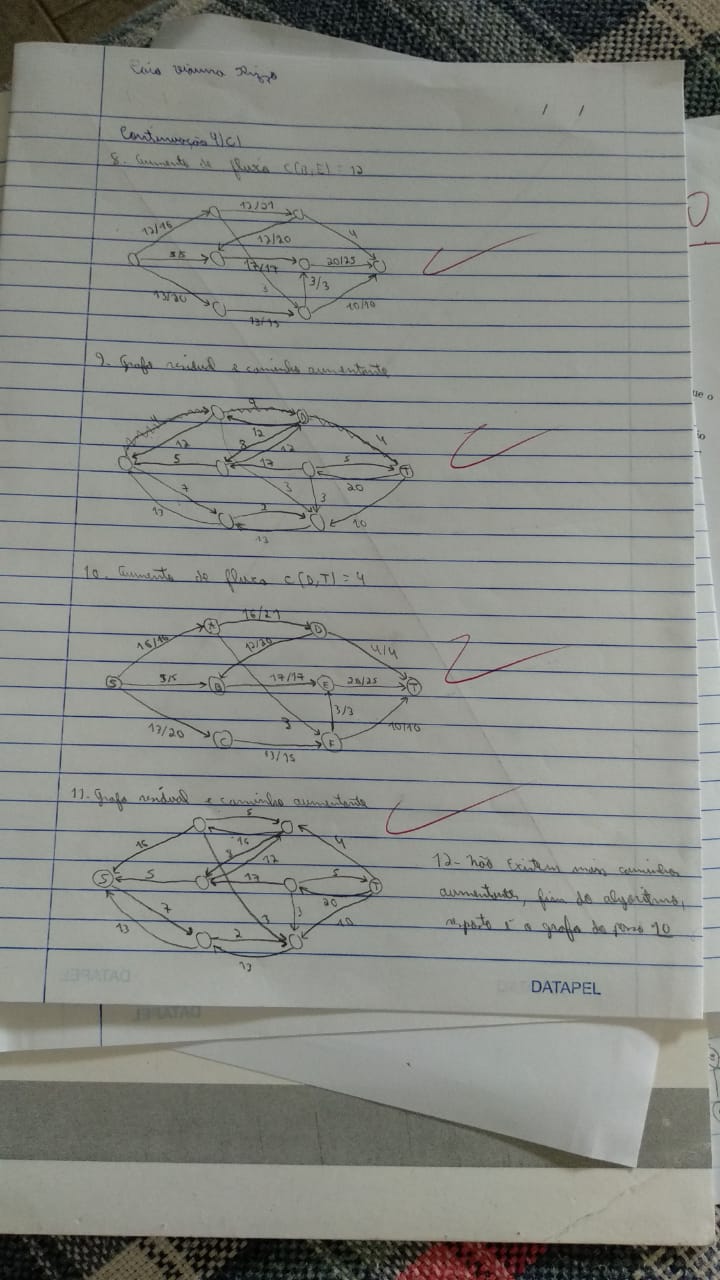 Caio Vianna Rizzo
/ /
Continuação 4)C)
8. Aumento de fluxo C(B,E) = 12
12/21
12/16
4
12/20
5/5
17/17
20/25
3
3/3
13/20
13/15
10/10
9. Grafo residual e caminho aumentante
9
4
D
12
12
8
12
4
5
17
5
T
20
7
3
3
13
2
10
13
10. Aumento de fluxo C(D,T) = 4
16/21
A
D
16/16
12/20
4/4
S
5/5
B
17/17
E
20/25
T
3
3/3
13/20
C
F
10/10
13/15
11. Grafo residual e caminho aumentante
5
16
16
4
8
12
S
5
17
5
T
20
7
3
3
10
13
2
13
12- Não existem mais caminhos
aumentantes, fim do algoritmo,
resposta é o grafo do passo 10
DATAPEL
ue o